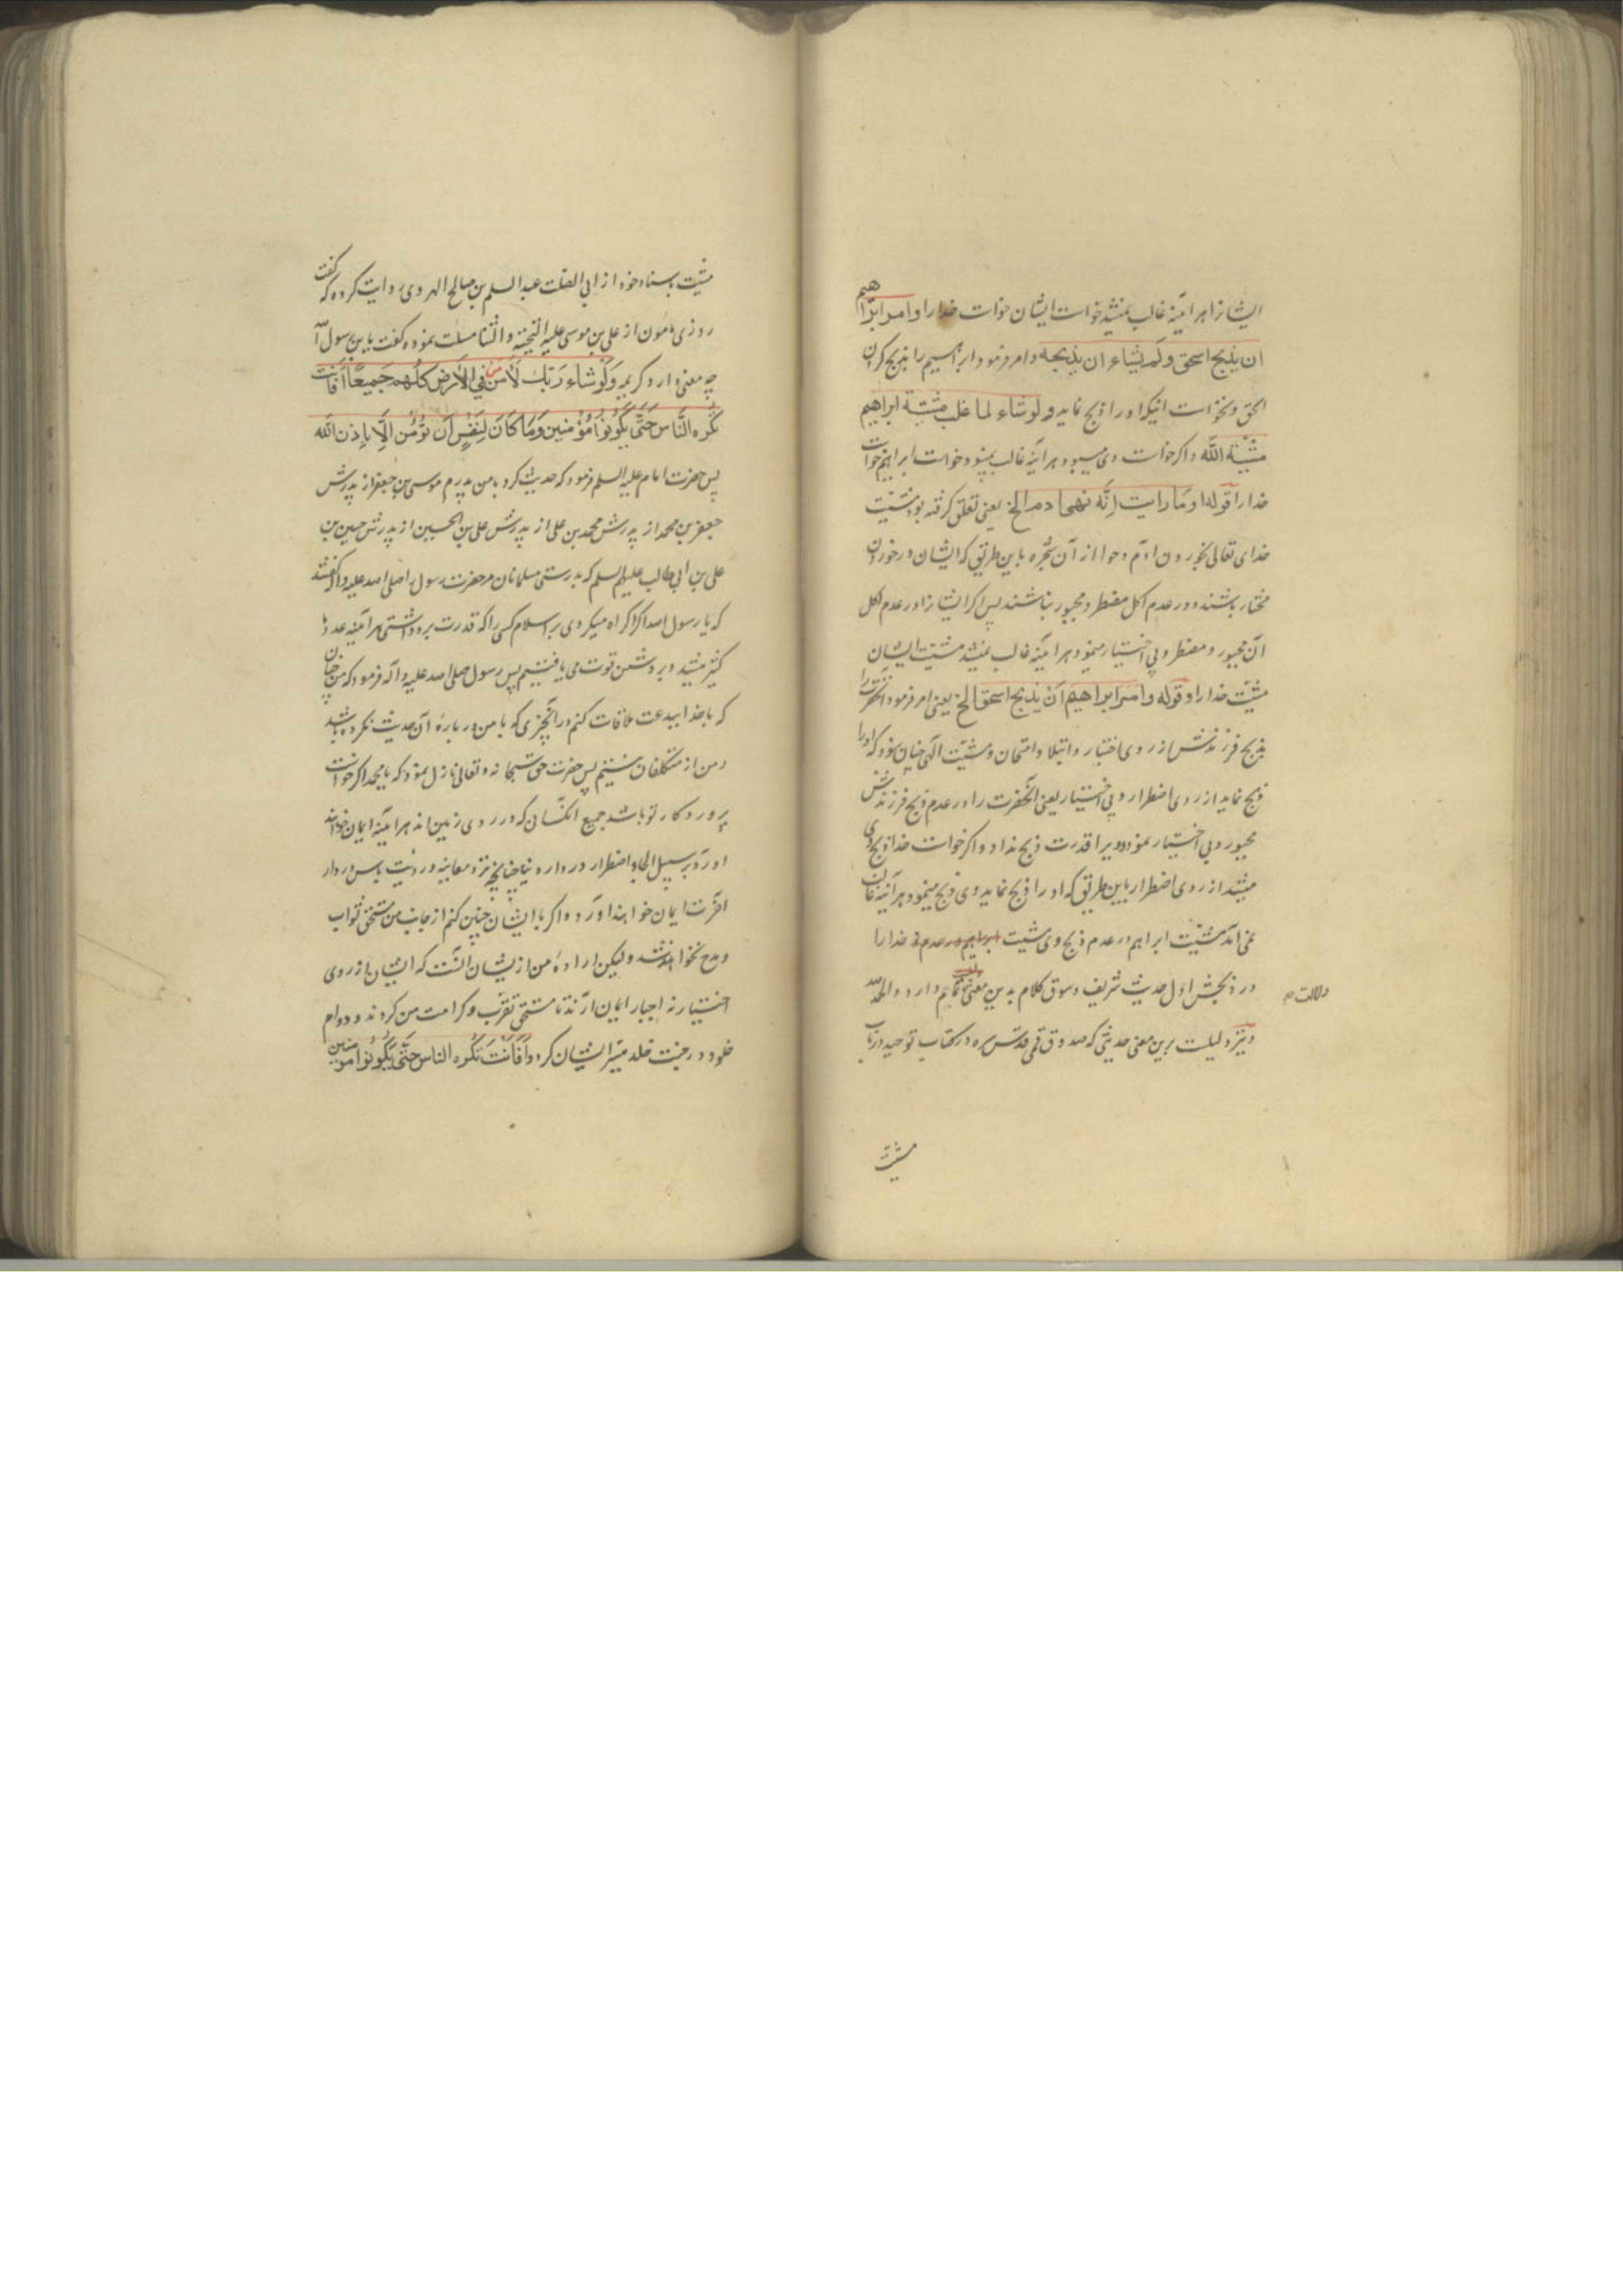 ایشانرا هر آینه غالب نمیشد خواست ایشان خواست خدا را و امر ابراهیم
ان یذبح اسحق ولم یشاء ان یذبحه و امر فرمود ابراهیم را بذبح کردن
اسحق و نخواست اینکه او را ذبح نماید ولو شاء لما غلب مشیّة ابراهیم
مشیّة الله و اگر خواست وی میبود هر آینه غالب نمیبود خواست ابراهیم خواست
خدا را قوله و ما رایت انه نهی ادم الخ یعنی تعلق گرفته بود مشیّت
خدای تعالی بخوردن آدم و حوا از آن شجره باین طریق که ایشان در خوردن
مختار باشند و در عدم اکل مضطر و مجبور نباشند پس اگر ایشانرا در عدم اکل
آن مجبور و مضطر و بی اختیار مینمود هر آینه غالب نمیشد مشیّت ایشان
مشیّت خدا را و قوله و امر ابراهیم ان یذبح اسحق الخ یعنی امر فرمود آنحضرت را
بذبح فرزندش از روی اختبار و ابتلا و امتحان و مشیّت الهی چنان بود که او را
ذبح نماید از روی اضطرار و بی اختیار یعنی آنحضرت را در عدم ذبح فرزندش
مجبور و بی اختیار نمود و ویرا قدرت ذبح نداد و اگر خواست خدا ذبح وی
میشد از روی اضطرار باین طریق که او را ذبح نماید وی ذبح مینمود هر آینه غالب
نمی آمد مشیّت ابراهیم در عدم ذبح وی مشیت خدا را
در و بخش اول حدیث شریف و سوق کلام بدین معنی دارد والحمد لله
دلالت
و نیز دلیلست برین معنی حدیثی که صدوق قمی قدّس سره در کتاب توحید در باب
مشیّت
مشیّت باسناد خود از ابی الصلت عبد السلم بن صالح الهروی روایت کرده که گفت
روزی مامون از علی بن موسی علیه التحیة و الثنا مسئلت نموده گفت یا بن رسول الله
چه معنی دارد کریمه وَلَوْ شَاءَ رَبُّكَ لَآمَنَ مَنْ فِي الْأَرْضِ كُلُّهُمْ جَمِيعًا أَفَأَنْتَ
تُكْرِهُ النَّاسَ حَتَّى يَكُونُوا مُؤْمِنِينَ وَمَا كَانَ لِنَفْسٍ أَنْ تُؤْمِنَ إِلَّا بِإِذْنِ اللَّهِ
پس حضرت امام علیه السلم فرمود که حدیث کرد با من پدرم موسی بن جعفر از پدرش
جعفر بن محمد از پدرش محمد بن علی از پدرش علی بن الحسین از پدرش حسین بن
علی بن ابی طالب علیهم السلم که بدرستی مسلمانان مر حضرت رسول را صلی الله علیه و اله گفتند
که یا رسول الله اگر اکراه میکردی بر اسلام کسی را که قدرت برو داشتی هر آینه عدد ما
کثیر میشد و بر دشمن قوت می یافتیم پس رسول صلی الله علیه و آله فرمود که من چنان
که با خدا ببدعت ملاقات کنم در آنچیزی که با من در باره آن حدیث نکرده باشد
و من از متکلفان نیستم پس حضرت حق سبحانه و تعالی نازل نمود که یا محمد اگر خواست
پروردکار تو باشد جمیع آنکسان که در روی زمین اند هر آینه ایمان خواهند
آورد بر سبیل الجا و اضطرار در دار دنیا چنانچه نزد معاینه و رؤیت باس در دار
آخرت ایمان خواهند آورد و اگر با ایشان چنین کنم از جانب من مستحق ثواب
و مدح نخواهند شد ولیکن اراده من از یشان آنست که ایشان از روی
اختیار نه اجبار ایمان آرند تا مستحق تقرّب و کرامت من کردند و دوام
خلود در جنت خلد میسر ایشان کردد أَفَأَنْتَ تُكْرِهُ النَّاسَ حَتَّى يَكُونُوا مُؤْمِنِينَ